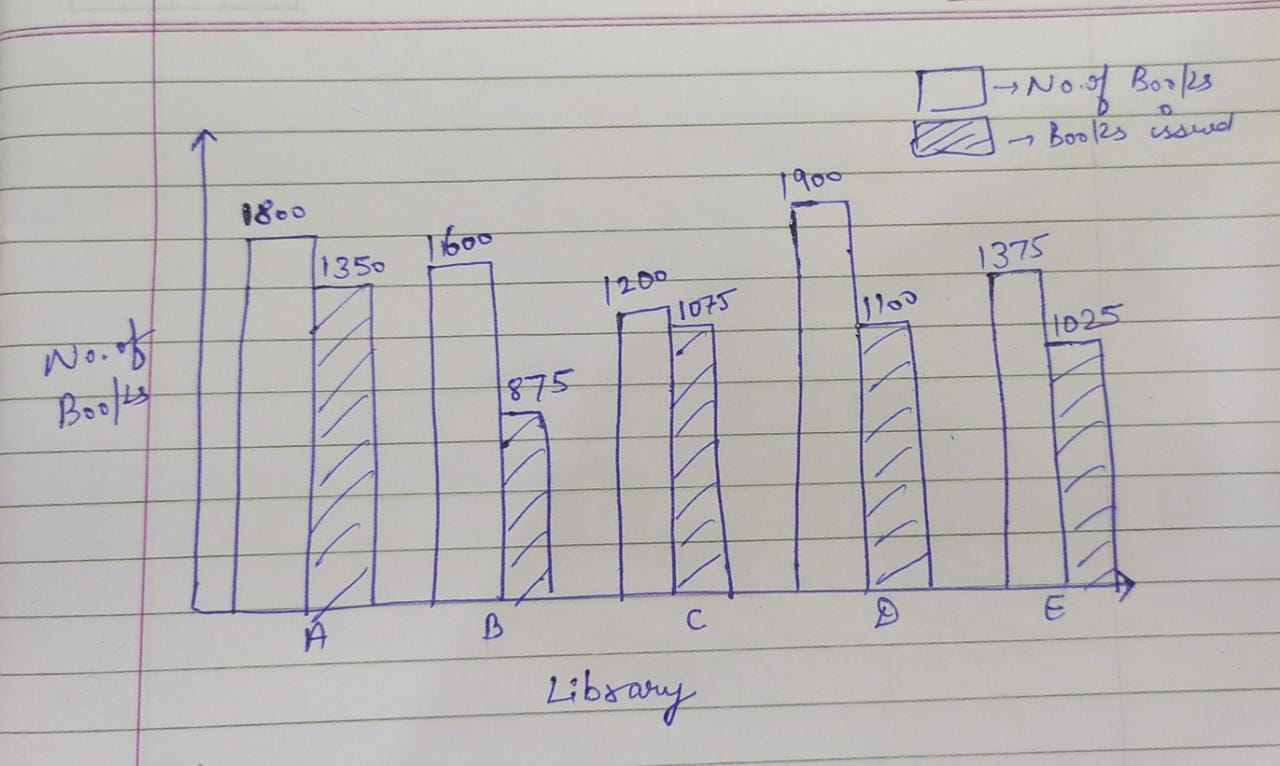 → No. of Books
→ Books issued
1900
1800
1600
1375
1350
1200
1075
1100
1025
875
No. of
Books
A B C D E
Library